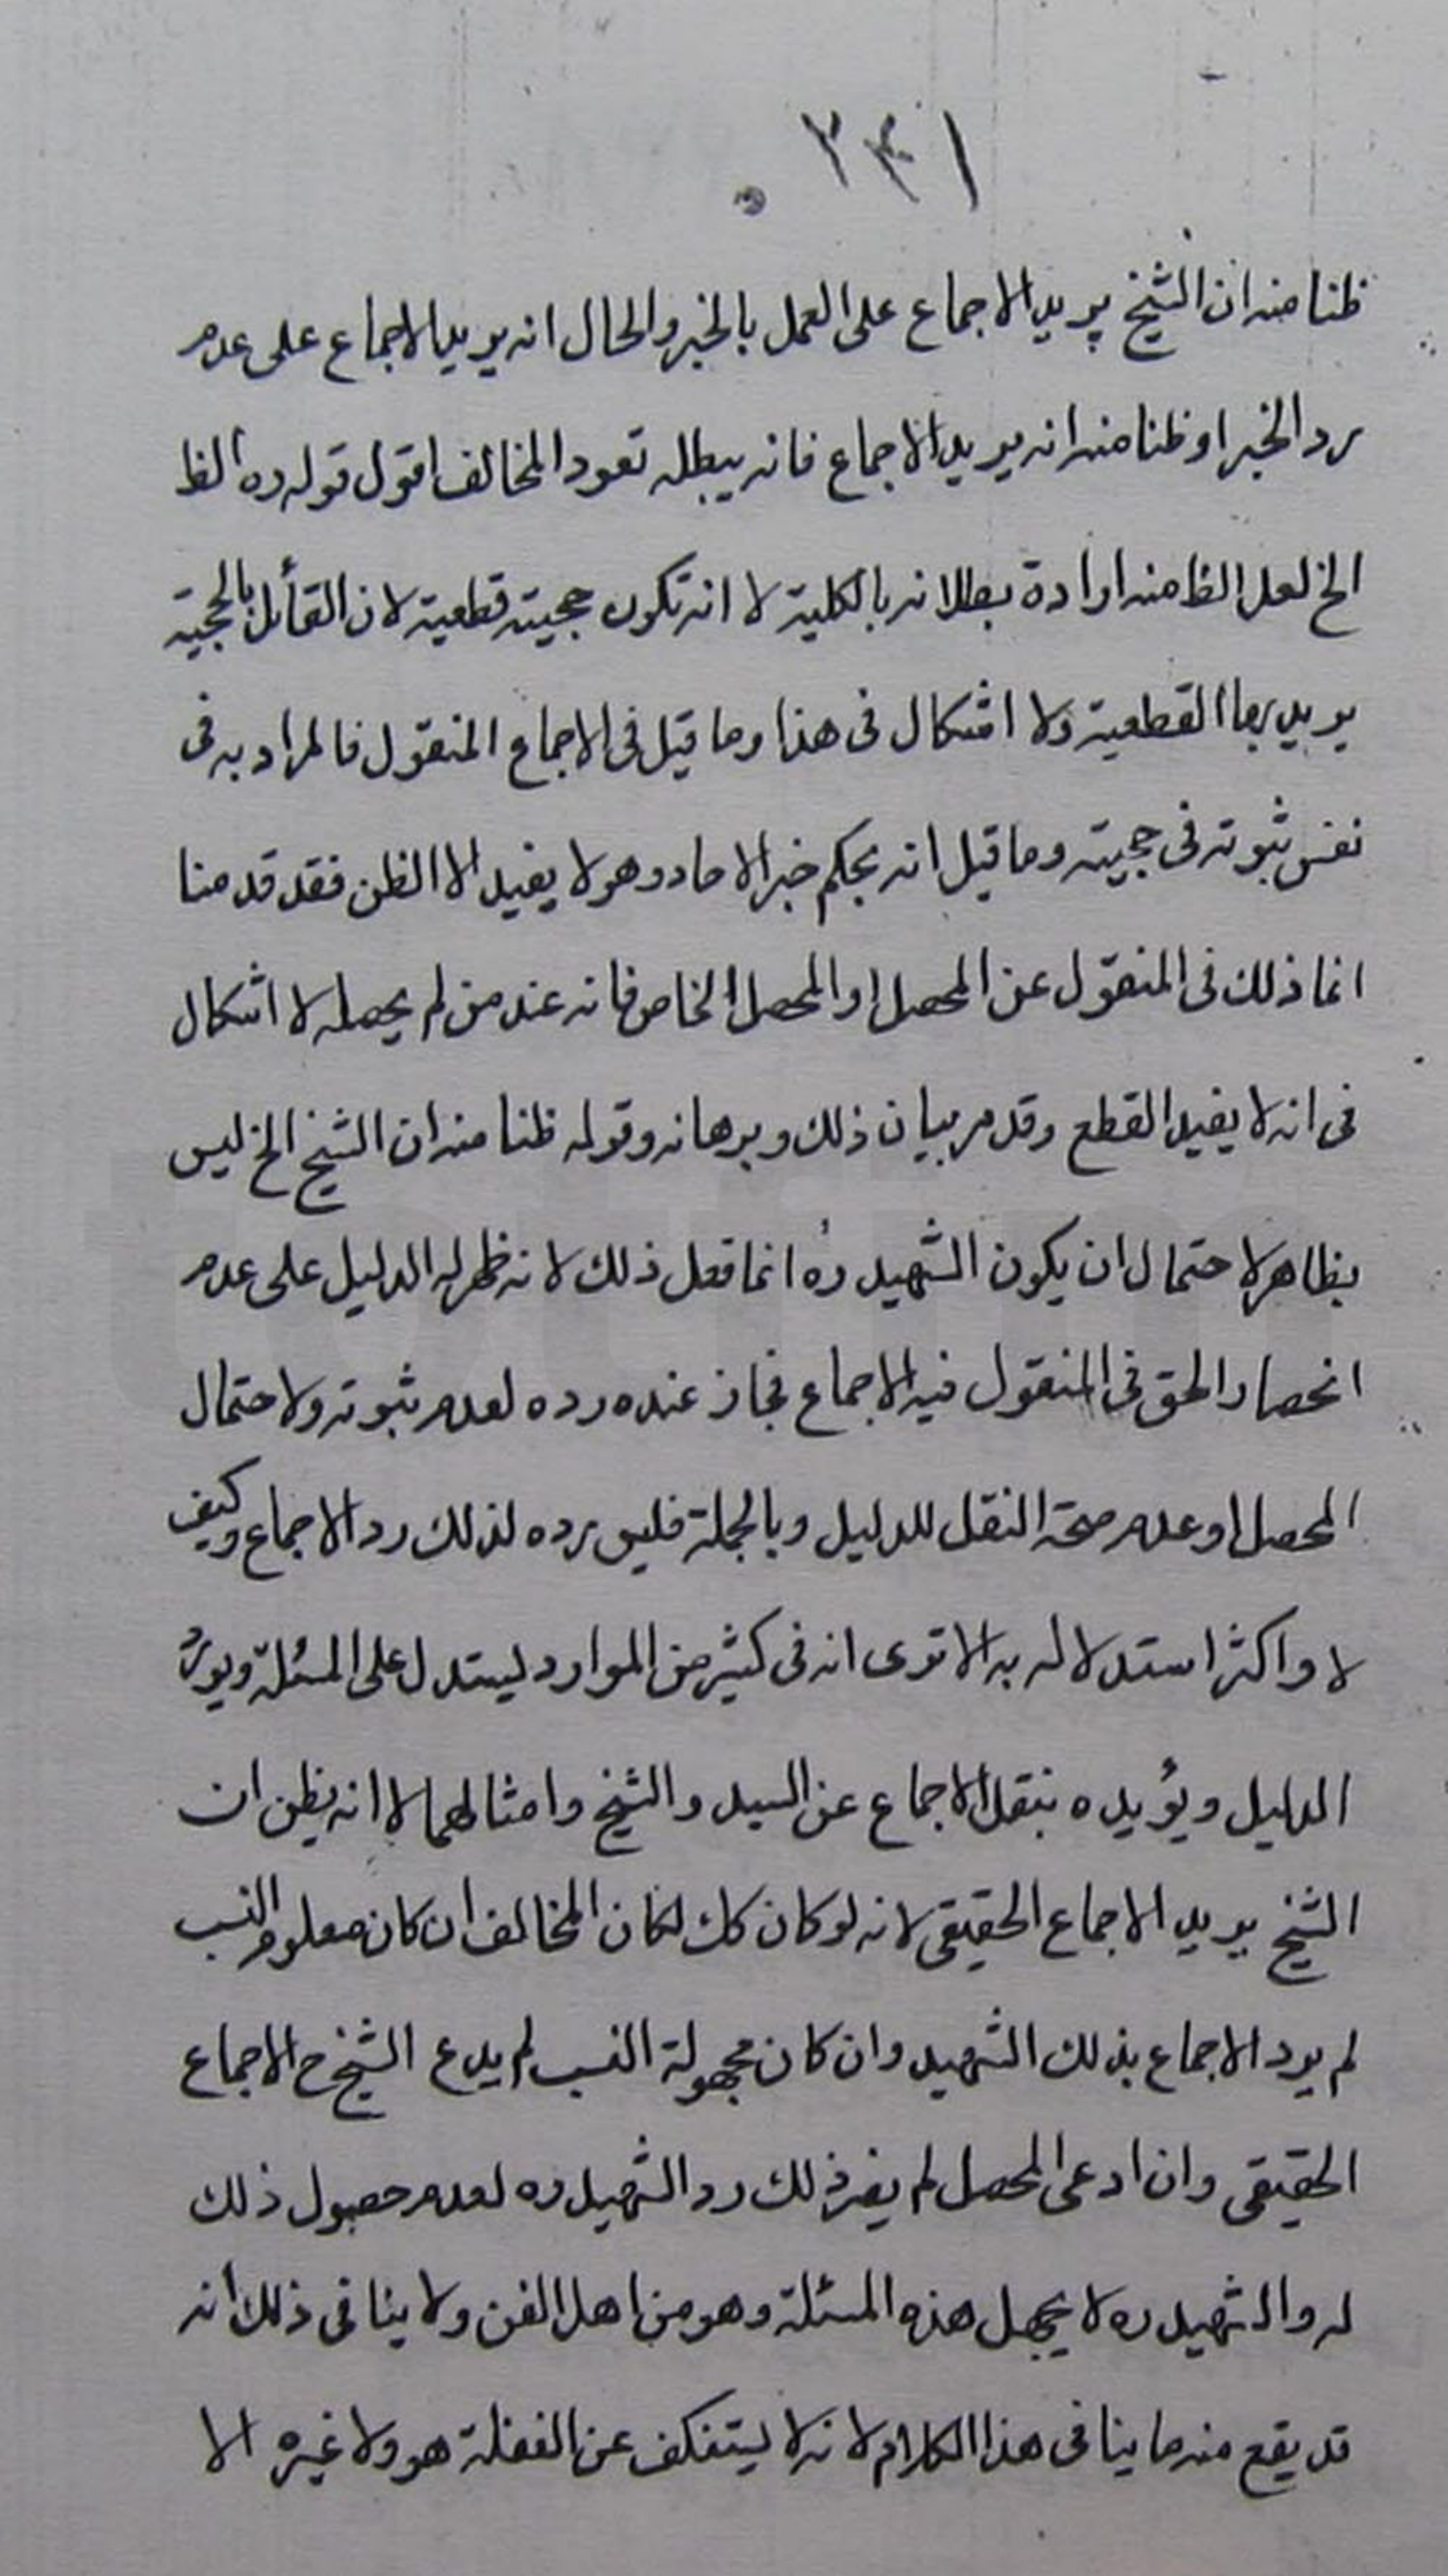 ٢٤١
ظنا منه ان الشيخ يريد الاجماع على العمل بالخبر والحال انه يريد الاجماع على عدم
رد الخبر او ظنا منه انه يريد الاجماع فانه يبطله تعود المخالف اقول قوله ره الظ
الخ لعل الظ منه ارادة بطلانه بالكلية لا انه تكون حجيته قطعية لان القائل بالحجية
يريد بها القطعية ولا اشكال فى هذا وما قيل فى الاجماع المنقول فالمراد به فى
نفس ثبوته فى حجيته وما قيل انه بحكم خبر الاحاد وهو لا يفيد الا الظن فقد قدمنا
انما ذلك فى المنقول عن المحصل او المحصل الخاص فانه عند من لم يحصله لا اشكال
فى انه لا يفيد القطع وقد مر بيان ذلك وبرهانه وقوله ظنا منه ان الشيخ الخ ليس
بظاهر لاحتمال ان يكون الشهيد ره انما فعل ذلك لانه ظهر له الدليل على عدم
انحصار الحق فى المنقول فيه الاجماع فجاز عنده رده لعدم ثبوته ولاحتمال
المحصل او عدم صحة النقل للدليل وبالجملة فليس رده لذلك رد الاجماع وكيف
لا واكثر استدلاله به الا ترى انه فى كثير من الموارد ليستدل على المسئلة ويورد
الدليل ويؤيده بنقل الاجماع عن السيد والشيخ وامثالهما لا انه يظن ان
الشيخ يريد الاجماع الحقيقى لانه لو كان كك لكان المخالف ان كان معلوم النسب
لم يرد الاجماع بذلك الشهيد وان كان مجهولة النسب لم يدع الشيخ ح الاجماع
الحقيقى وان ادعى المحصل لم يضر ذلك رد الشهيد ره لعدم حصول ذلك
له والشهيد ره لا يجهل هذه المسئلة وهو من اهل الفن ولا ينافى ذلك انه
قد يقع منه ما ينافى هذا الكلام لانه لا يستنكف عن الغفلة هو ولا غيره الا